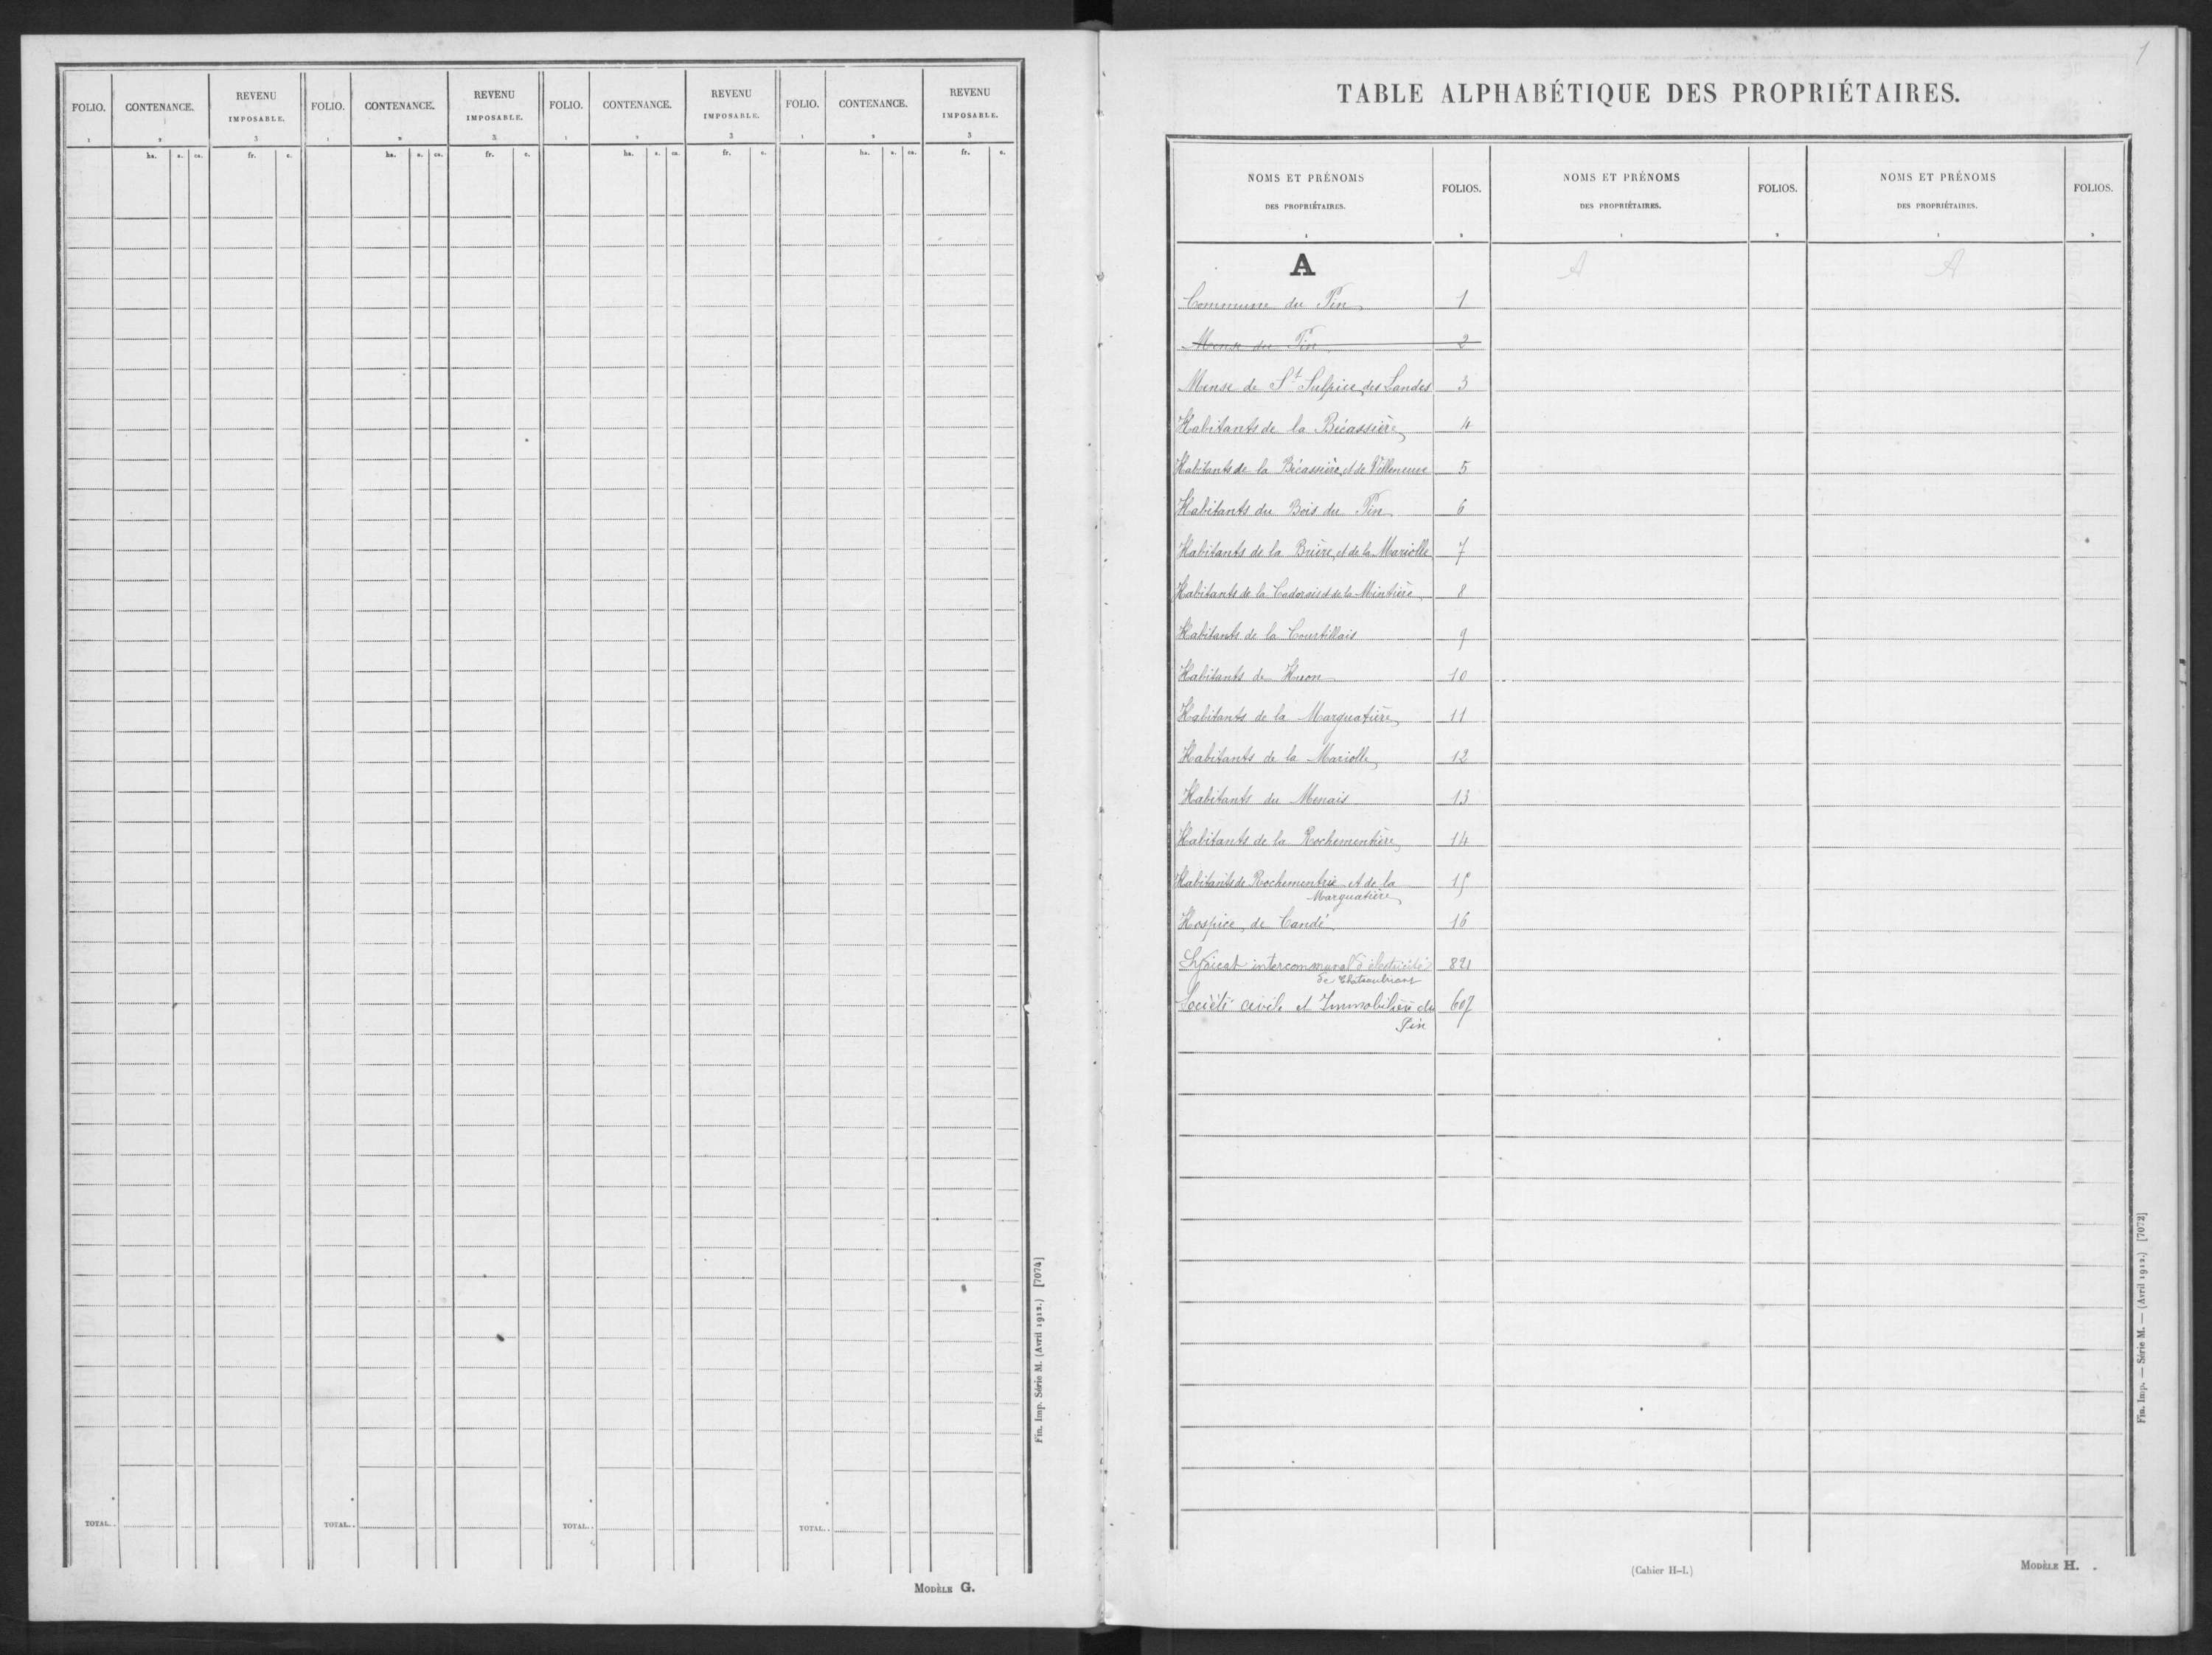 FOLIO. CONTENANCE. REVENU IMPOSABLE. FOLIO. CONTENANCE. REVENU IMPOSABLE. FOLIO. CONTENANCE. REVENU IMPOSABLE. FOLIO. CONTENANCE. REVENU IMPOSABLE.
1 2 3 1 2 3 1 2 3 1 2 3
ha. a. ca. fr. c. ha. a. ca. fr. c. ha. a. ca. fr. c. ha. a. ca. fr. c.
TOTAL.. TOTAL.. TOTAL.. TOTAL..
Fin. Imp. Série M. (Avril 1912.) [7074]
MODÈLE G.
1
TABLE ALPHABÉTIQUE DES PROPRIÉTAIRES.
NOMS ET PRÉNOMS DES PROPRIÉTAIRES. FOLIOS. NOMS ET PRÉNOMS DES PROPRIÉTAIRES. FOLIOS. NOMS ET PRÉNOMS DES PROPRIÉTAIRES. FOLIOS.
1 2 1 2 1 2
A A A
Commune du Pin 1
Mense du Pin 2
Mense de St Sulpice des Landes 3
Habitants de la Bécassière 4
Habitants de la Bécassière et de Villeneuve 5
Habitants du Bois du Pin 6
Habitants de la Brière, et de la Mariolle 7
Habitants de la Cadorais et de la Mintière 8
Habitants de la Courtillais 9
Habitants de Huon 10
Habitants de la Marquatière 11
Habitants de la Mariolle 12
Habitants du Menais 13
Habitants de la Rochementière 14
Habitants de Rochementrie et de la 15
Marquatière
Hospice de Candé 16
Syndicat intercommunal d'électricité 821
de Chateaubriant
Société civile et Immobilière du 607
Pin
Fin. Imp. — Série M. — (Avril 1912.) [7072]
(Cahier H-I.)
MODÈLE H.